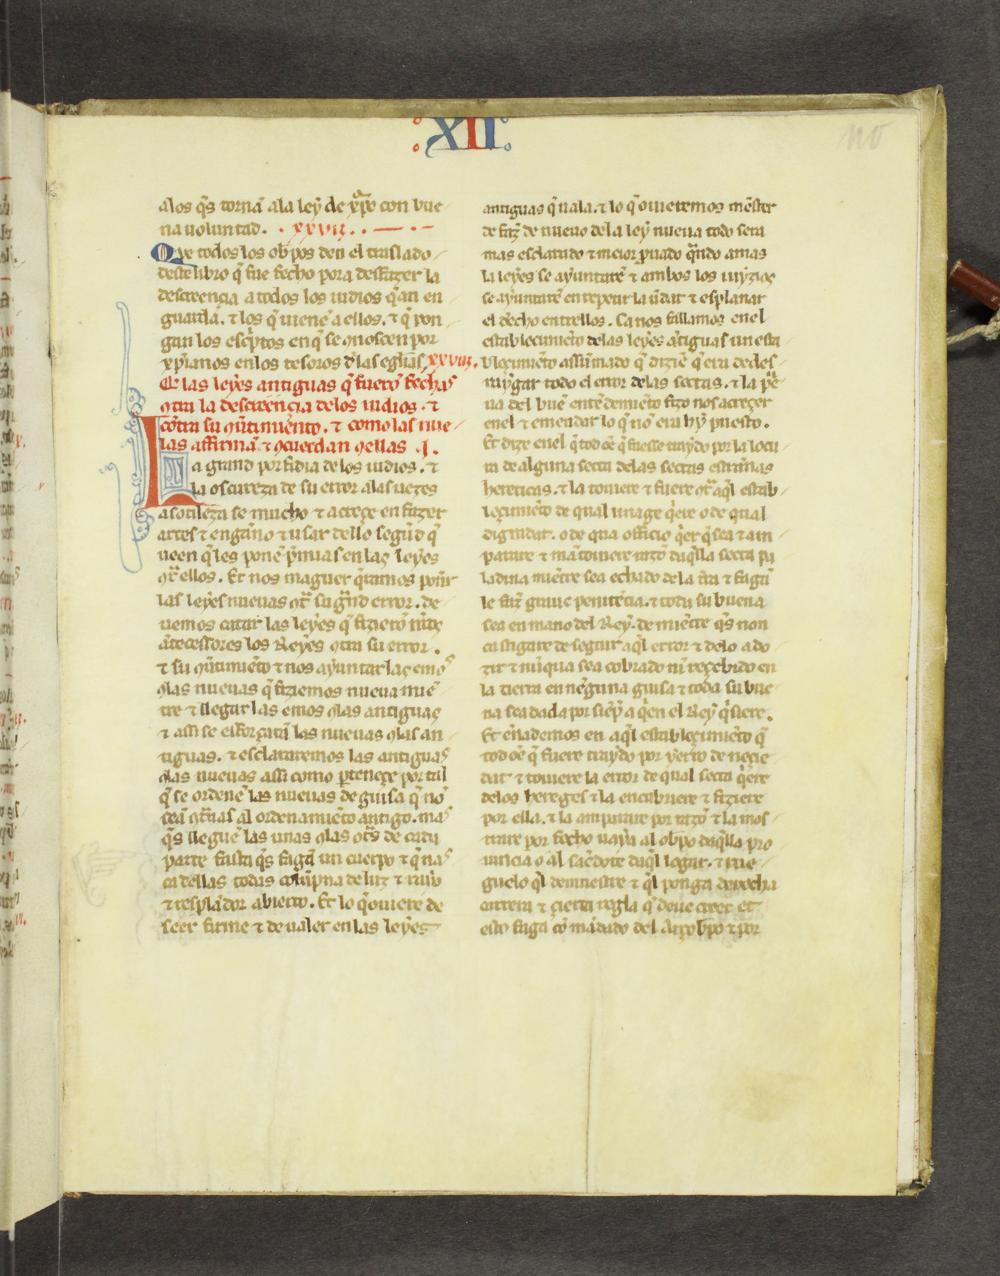 :XII:
110
alos q̃s torna͂ ala ley de xp̃o con bue
na uoluntad. . xxvij. . — . –
Que todos los obpos den el traslado
deste libro q̃ fue fecho pora desfazer la
descreençia a todos los iudios q̃an en
guarda. ⁊ los q̃ uiene͂ a ellos. ⁊ q̃ pon
gan los esc̃ptos en q̃ se ɔnosçen por
xp̃ianos en los tesoros d̃las egl̃ias. xxviij.
De las leyes antiguas q̃ fuero͂ fechas
ɔtra la descreençia delos iudios. ⁊
co͂tra su ɔ̃tinimie͂nto. ⁊ como las nue
uas affirma͂ ⁊ ɔcuerdan ɔellas .I.
La grand porfidia de los iudios. ⁊
la oscureza de su error alas uezes
asotileza se mucho ⁊ acreçe en fazer
artes ⁊ engan̄o ⁊ usar dello segu͂d q̃
ueen q̃ les pone͂ p̃mias en las leyes
ɔt̃ ellos. Et nos maguer q̃ramos pon̄r
las leyes nueuas ɔt̃ su gr̃nd error. de
uemos catar las leyes q̃ fiziero͂ nr̃os
a͂tecessores los Reyes ɔtra su error.
⁊ su ɔ̃tinimie͂to ⁊ nos ayuntar las emos
ɔlas nueuas q̃ fiziemos nueua mie͂
tre ⁊ llegar las emos ɔlas antiguas
⁊ assi se esforçara͂ las nueuas ɔlas an
tiguas. ⁊ esclararemos las antiguas
ɔlas nueuas assi como p̱teneçe por tal
q̃ se ordene͂ las nueuas de guisa q̃ no͂
sea͂ ɔt̃rias al ordenamie͂to antigo. mas
q̃s llegue͂ las unas ɔlas ot̃s de cada
parte fasta q̃s faga͂ un cuerpo ⁊ q̃ nas
ca dellas todas colu͂pna de luz ⁊ rayo
⁊ respla͂dor abierto. Et lo q̃ ouiere de
seer firme ⁊ de ualer en las leyes
antiguas q̃ uala. ⁊ lo q̃ ouieremos me͂ster
de faz̃ de nueuo de la ley nueua todo sera
mas esclarado ⁊ meior p̃uado q̃ndo amas
la leyes se ayuntare͂ ⁊ ambos los iuyzios
se ayuntare͂ en repetir la u̇dat ⁊ esplanar
el d̃echo entrellos. Ca nos fallamos en el
establecimie͂to delas leyes a͂tiguas un esta
bleçimie͂to assu͂mado q̃ dizie͂ q̃ era de des
raygar todo el error delas sectas. ⁊ la
ua del bue͂ ente͂demie͂to fizo nos acreçer
en el ⁊ emendar lo q̃ no͂ era hy puesto.
Et dize en el q̃ tod oe͂ q̃ fuesse traydo por la locu
ra de alguna secta delas sectas estran̄as
hereticas. ⁊ la touiere ⁊ fuere ɔt̃ aq̃l estab
leçimie͂to de qual linage q̃ere o de qual
dignidat. o de qua officio q̃er q̃ sea ⁊ am
parare ⁊ ma͂touiere razo͂ daq̃lla secta pa
ladina mie͂tre sea echado de la fra ⁊ faga͂
le faz̃ graue penite͂cia. ⁊ toda su buena
sea en mano del Rey. de mie͂tre q̃s non
castigare de seguir aq̃l error ⁊ delo a do
zir ⁊ nu͂qua sea cobrado ni͂ reçebido en
la tierra en ne͂guna guisa ⁊ toda su bue
na sea dada por sie͂p̃ a q̃en el Rey q̃siere.
Et en̄ademos en aq̃l estableçimie͂to q̃
tod oe͂ q̃ fuere traydo por yerro de neçie
dat ⁊ touiere la error de qual secta q̃ere
delos hereges ⁊ la encubriere ⁊ fiziere
por ella. ⁊ la amparare por razo͂ ⁊ la mos
trare por fecho uaya al obpo daq̃lla pro
uincia o al sac̃dote daq̃l logar. ⁊ rue
guelo q̃l demuestre ⁊ q̃l ponga derecha
carrera ⁊ çierta regla q̃ deue creer et
esto faga co͂ ma͂dado del Arçobpo ⁊ por